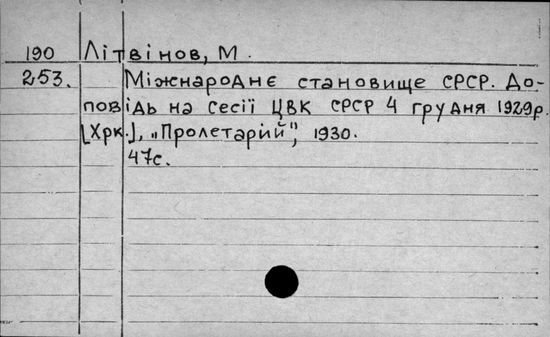 190 Літвінов, М.
253. Міжнароднє становище СРСР. До-
повідь на сесії ЦВК СРСР 4 грудня 1929р.
[Хрк.], "Пролетарий", 1930.
47с.